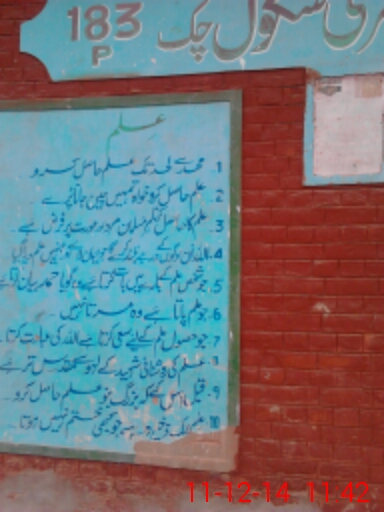 پرائمری سکول چک
183
P
علم
1. مہد سے لحد تک علم حاصل کرو
2. علم حاصل کرو خواہ تمہیں چین جانا پڑے
3. علم کا حاصل کرنا ہر مسلمان مرد و عورت پر فرض ہے
4. اللہ ان لوگوں کے
5. جو شخص علم کے بارے میں
6. جو علم پاتا ہے وہ مرتا نہیں
7. جو حصول علم کے لیے سعی کرتا ہے اللہ کی عبادت کرتا
8. علم کی روشنائی شہید کے لہو سے مقدس تر ہے
9. قبل اس کے کہ بزرگ بنو علم حاصل کرو
10. علم ایک جو کبھی ختم نہیں ہوتا
11-12-14 11:42